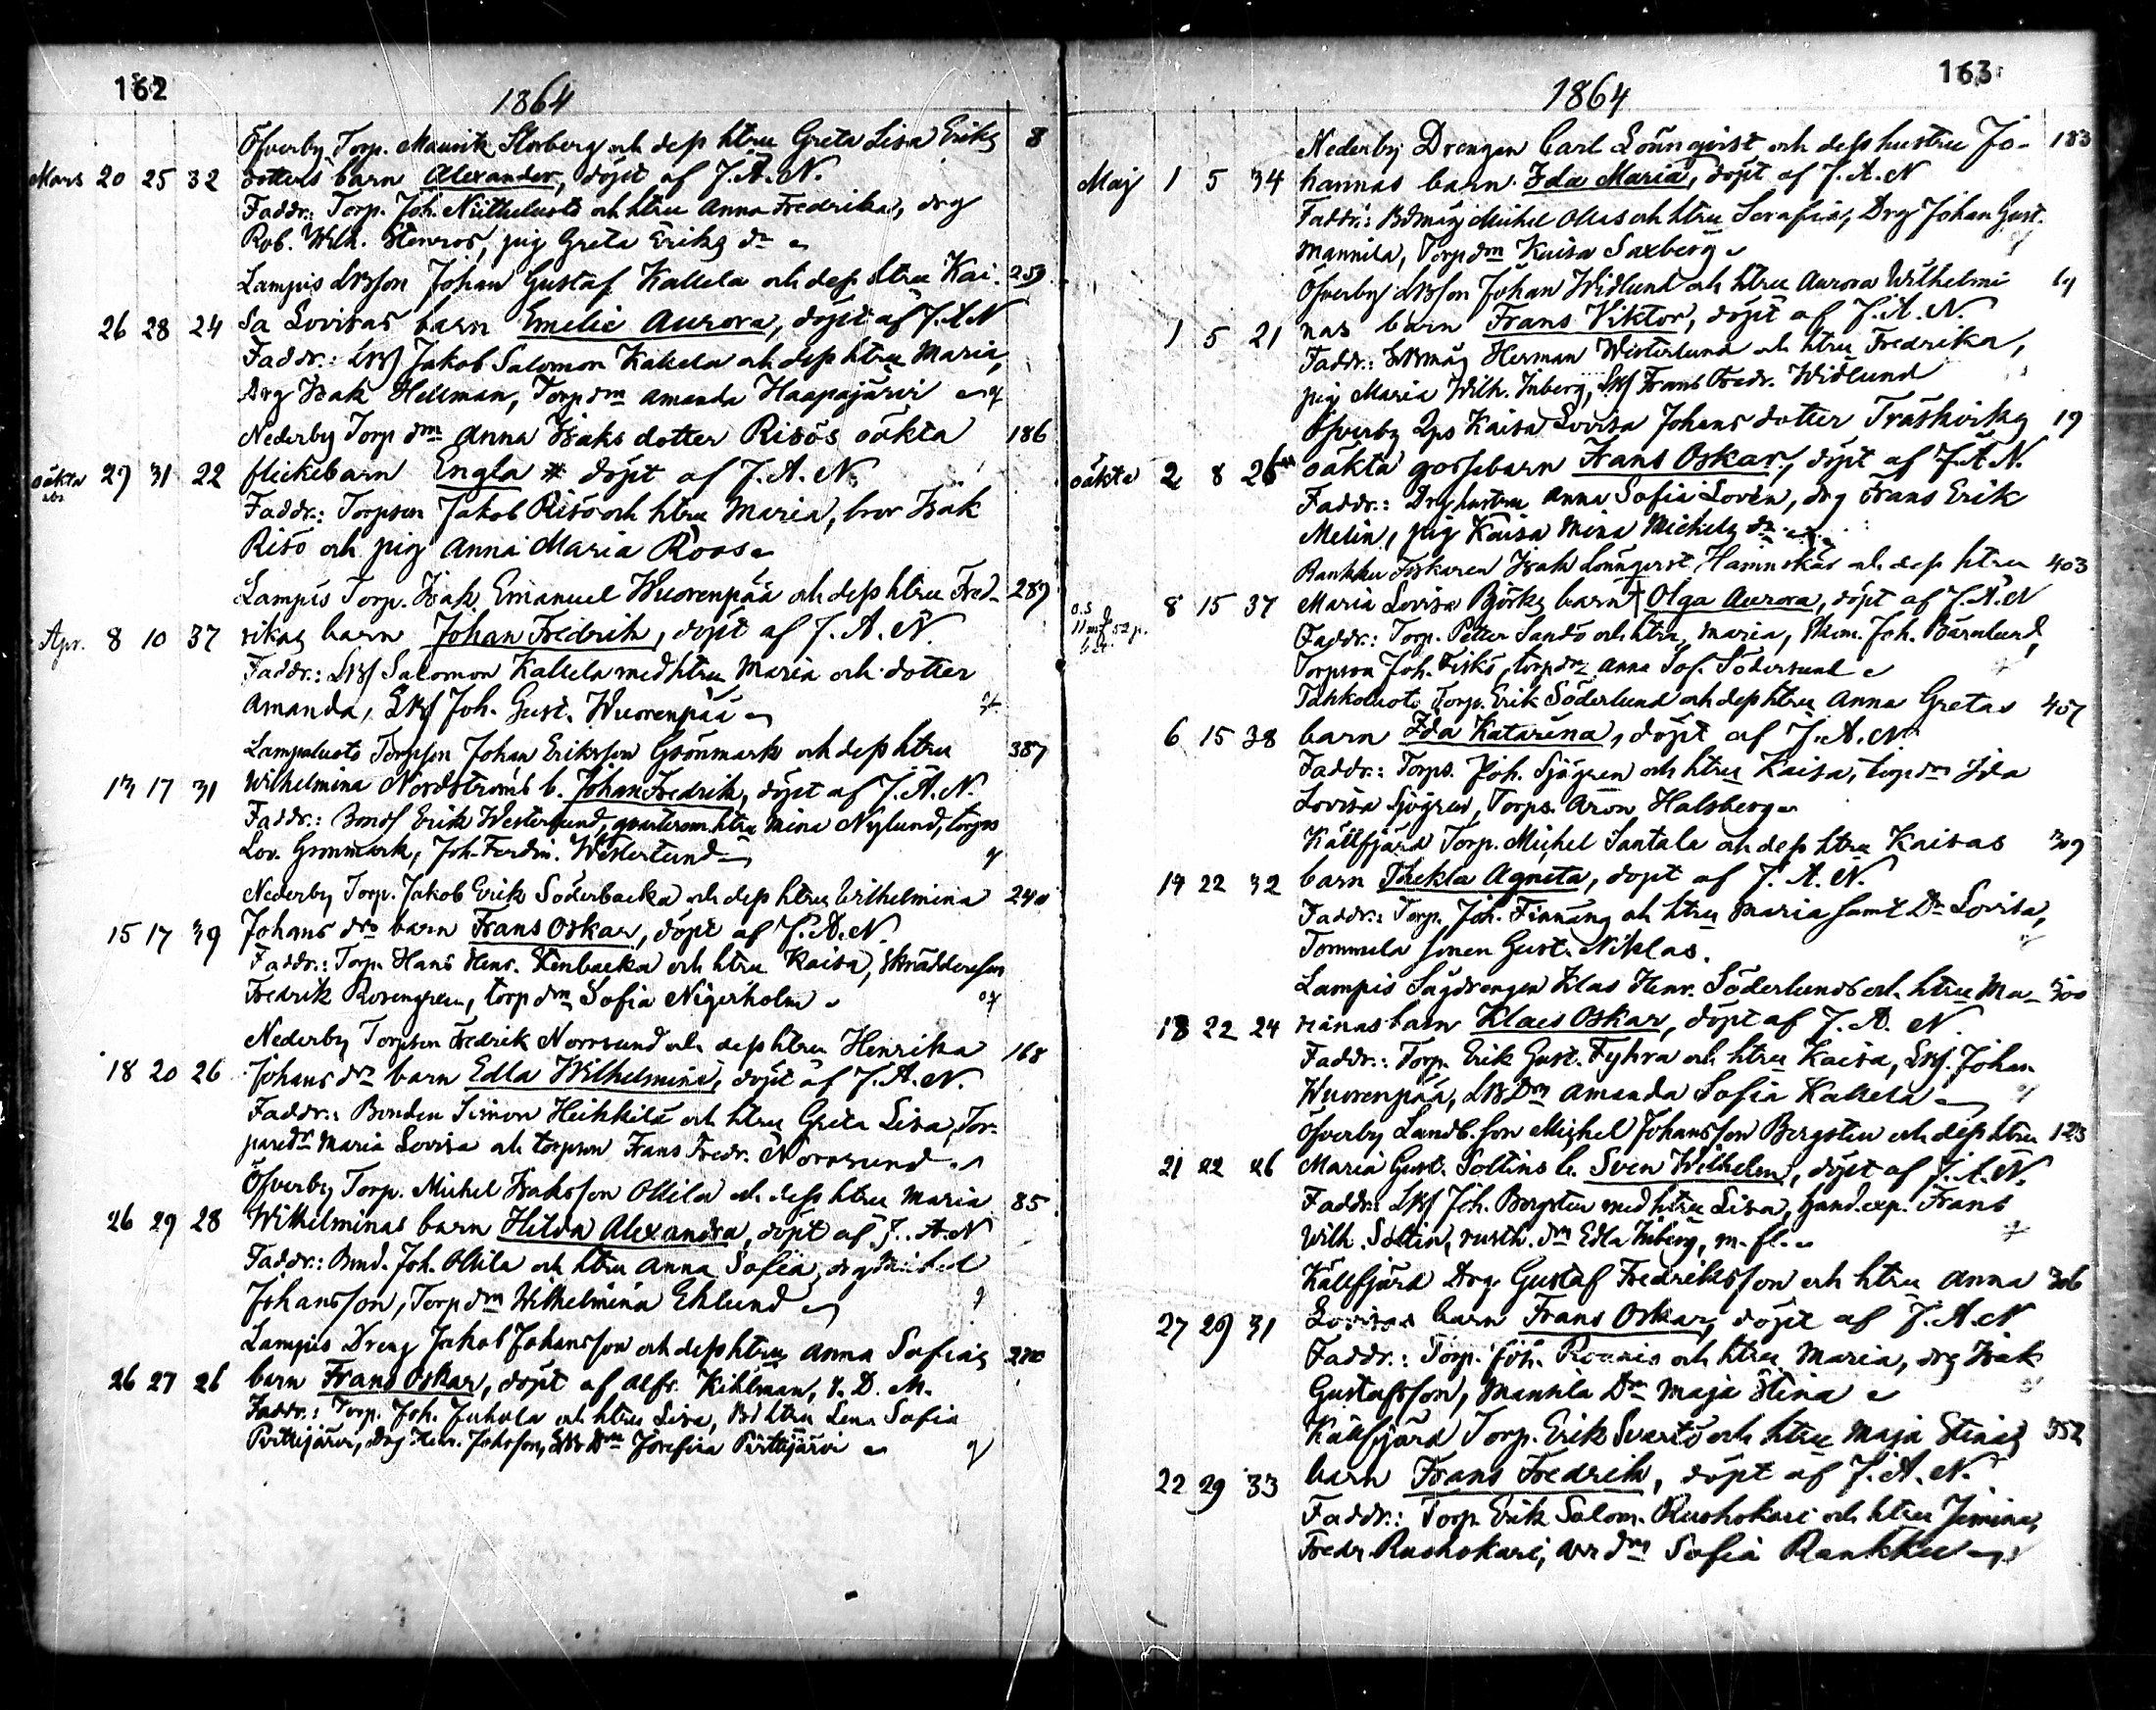 162
1864
Öfverby Torp. Maurits Storberg och dess htru Greta Lisa Eriks 8
Mars 20 25 32 dotters barn Alexander, döpt af J. A. N.
Faddr.: Torp. Joh. Niittuluoto och htru Anna Fredrika, drg
Rob. Wilh. Stenros, pig Greta Eriks dr
Lampis Lbsson Johan Gustaf Kallela och dess htru Kai- 259
26 28 24 sa Lovisas barn Emelie Aurora, döpt af J. A. N
Faddr.: Lbf Jakob Salomon Kallela och dess htru Maria,
Drg Isak Hellman, Torp drn Amanda Haapajärvi
Nederby Torp drn Anna Isaks dotter Risös oäkta 186
oäkta 29 31 22 flickebarn Engla döpt af J. A. N.
Faddr.: Torpson Jakob Risö och htru Maria, bror Isak
Risö och pig Anna Maria Roos
Lampis Torp. Isak Emanuel Wuorenpää och dess htru Fred- 289
Apr. 8 10 37 rikas barn Johan Fredrik, döpt af J. A. N.
Faddr.: Lbf Salomon Kallela med htru Maria och dotter
Amanda, Lbf Joh. Gust. Wuorenpää
Lampaluoto Torpson Johan Eriksson Grönmark och dess htru 387
13 17 31 Wilhelmina Nordströms b. Johan Fredrik, döpt af J. A. N.
Faddr.: Bondf Erik Westerlund, qvarterm. htru Mina Nylund, torps
Lov. Grönmark, Joh. Ferdin. Westerlund
Nederby Torp. Jakob Erik Söderbacka och dess htru Wilhelmina 240
15 17 39 Johans drs barn Frans Oskar, döpt af J. A. N.
Faddr.: Torp. Hans Henr. Stenbacka och htru Kaisa, Skräddareson
Fredrik Rosengren, torp drn Sofia Nigerholm
Nederby Torpson Fredrik Norrsund och dess htru Henrika 168
18 20 26 Johans drs barn Edla Wilhelmina, döpt af J. A. N.
Faddr.: Bonden Simon Heikkilä och htru Greta Lisa, Tor-
paredr Maria Lovisa och torpson Frans Fredr. Norrsund
Öfverby Torp. Michel Isaksson Ollila och dess htru Maria 85
26 29 28 Wilhelminas barn Hilda Alexandra, döpt af J. A. N
Faddr.: Bond. Joh. Ollila och htru Anna Sofia, drg Michel
Johansson, Torp drn Wilhelmina Eklund
Lampis Dreng Jakob Johansson och dess htru Anna Sofias 270
26 27 26 barn Frans Oskar, döpt af Alfr. Kihlman, V. D. M.
Faddr.: Torp. Joh. Juhola och htru Lisa, Bd htru Lena Sofia
Pirttijärvi, Drg Henr. Johsson, Drn Josefina Pirttijärvi
163
1864
Nederby Drengen Carl Lönnqvist och dess hustru Jo- 183
Maj 1 5 34 hannas barn Ida Maria, döpt af J. A. N
Faddr.: Bdmåg Michel Ollas och htru Serafia, Drg Johan Gust.
Mannila, Torp drn Kaisa Saxberg
Öfverby Lbsson Johan Widlund och htru Aurora Wilhelmi 64
1 5 21 nas barn Frans Viktor, döpt af J. A. N.
Faddr.: Lbmåg Herman Westerlund och htru Fredrika,
pig Maria Wilh. Inberg, Lbf Frans Fredr. Widlund
Öfverby Lps Kaisa Lovisa Johans dotter Träskviks 19
oäkta 2 8 26 oäkta gossebarn Frans Oskar, döpt af J. A. N.
Faddr.: Drg hustru Anna Sofia Lovén, drg Frans Erik
Melin, pig Kaisa Mina Michels dr
Rankku Fiskaren Isak Lönnqvist Hamnskär och dess htru 403
8 15 37 Maria Lovisa Björks barn † Olga Aurora, döpt af J. A. N
Faddr.: Torp. Petter Sandö och htru Maria, Joh. Bärnlund,
Torpson Joh. Fiskö, torp dr Anna Sof. Södersund
Tahkoluoto Torp. Erik Söderlund och dess htru Anna Gretas 407
6 15 38 barn Ida Katarina, döpt af J. A. N.
Faddr.: Torps. Joh. Sjögren och htru Kaisa, torp drn Ida
Lovisa Sjögren, Torps. Aron Halsberg
Källfjärd Torp. Michel Santala och dess htru Kaisas 309
14 22 32 barn Thekla Agneta, döpt af J. A. N.
Faddr.: Torp. Joh. Finnäng och htru Maria samt Dr Lovisa,
Tommila sonen Gust. Niklas.
Lampis Sågdrengen Klas Henr. Söderlunds och htru Ma- 300
18 22 24 rianas barn Klaes Oskar, döpt af J. A. N.
Faddr.: Torp. Erik Gust. Fyhra och htru Kaisa, Lbf. Johan
Wuorenpää, Lb Drn Amanda Sofia Kallela
Öfverby Landb. son Michel Johansson Bergsten och dess htru 123
21 22 26 Maria Gust. Soltins b. Sven Wilhelm, döpt af J. A. N.
Faddr.: Lbf Joh. Bergsten med htru Lisa, hand. exp. Frans
Wilh. Soltin, rusth. drn Edla Inberg, m. fl.
Källfjärd Drg Gustaf Fredriksson och htru Anna 306
27 29 31 Lovisas barn Frans Oskar, döpt af J. A. N
Faddr.: Torp. Joh. Rounis och htru Maria, drg Isak
Gustafsson, Mansila Drn Maja Stina
Källfjärd Torp. Erik Svartö och htru Maja Stinas 352
22 29 33 barn Frans Fredrik, döpt af J. A. N.
Faddr.: Torp. Erik Salom. Ruohokari och htru Jimina,
Fredr Ruohokari, drn Sofia Rankku